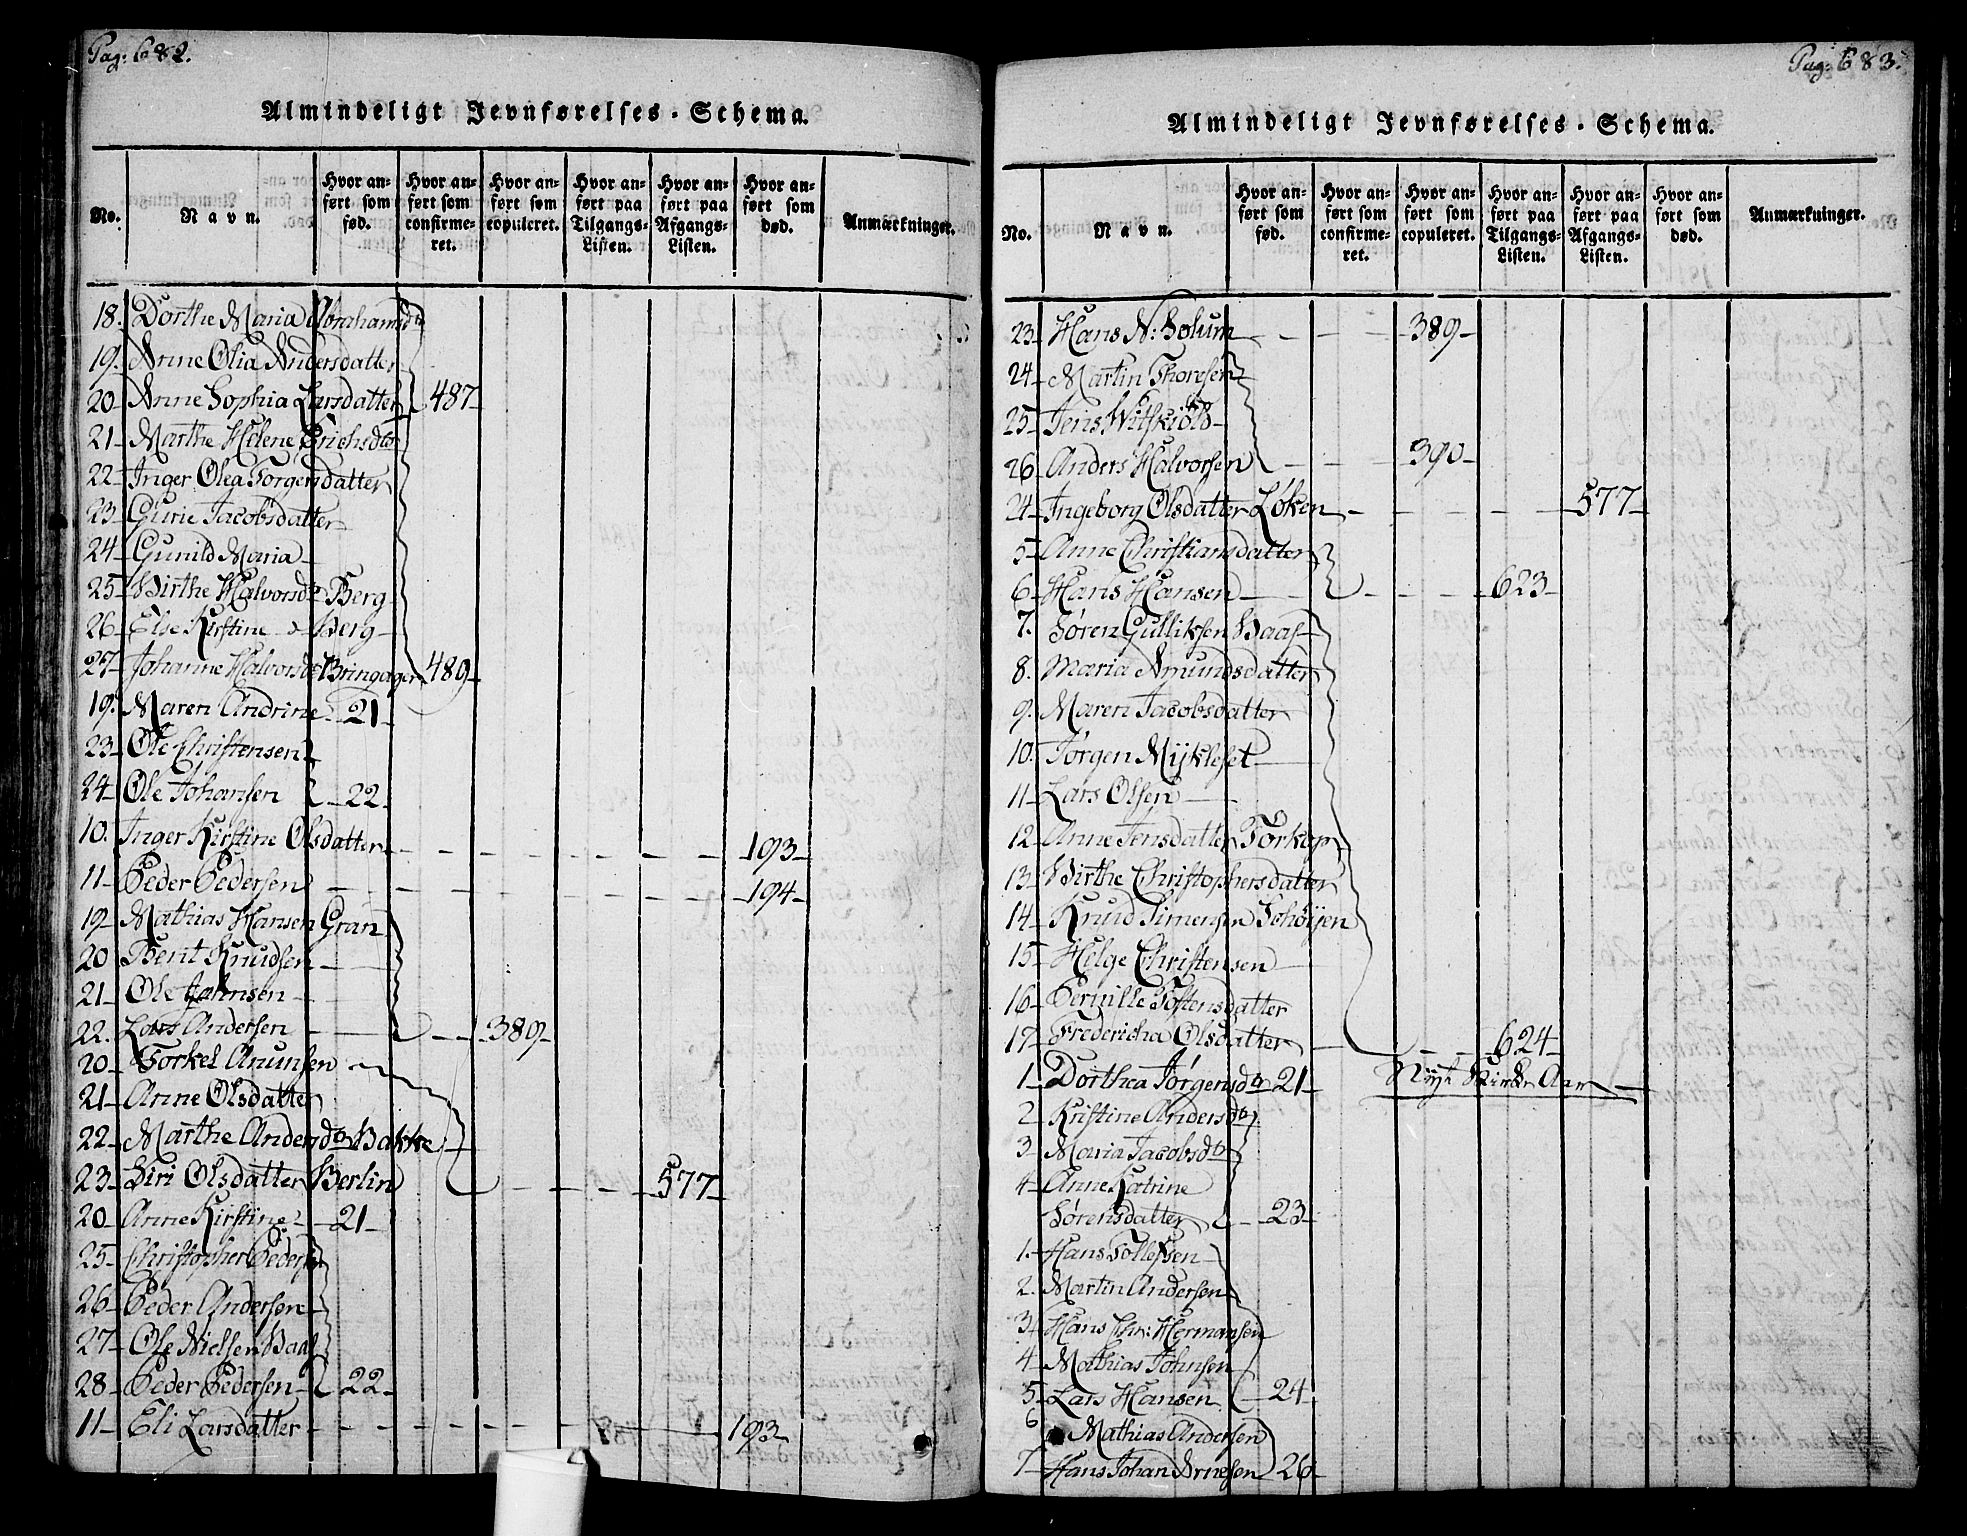 Pag: 682.
Almindeligt Jevnførelses-Schema.
No.
Navn.
Hvor anført som fød.
Hvor anført som confirmeret.
Hvor anført som copuleret.
Hvor anført paa Tilgangs-Listen.
Hvor anført paa Afgangs-Listen.
Hvor anført som død.
Anmærkninger.
18. Dorthe Maria Abrahamsdtr
19. Anne Olia Andersdatter
20 Anne Sophia Larsdatter 487
21 Marthe Helene Erichsdtr
22 Inger Olea Torgersdatter
23 Gurie Jacobsdatter
24 Gunild Maria
25 Birthe Halvorsdr Berg
26 Else Kirstine Berg
27 Johanne Halvorsdr Bringager 489
19. Maren Andrine 21
23 Ole Christensen
24 Ole Johansen 22
10. Inger Kirstine Olsdatter 193
11 Peder Pedersen 194
19 Mathias Hansen Gran
20 Berit Knudsen
21 Ole Johnsen
22. Lars Andersen 389
20 Torkel Anunsen
21 Anne Olsdatter
22 Marthe Andersdtr Bakke
23 Siri Olsdatter Berlin 577
20 Anne Kirstine 21
25 Christopher Peders
26 Peder Andersen
27 Ole Nielsen Baas
28 Peder Pedersen 22
11 Eli Larsdatter 193
Pag: 683.
Almindeligt Jevnførelses-Schema.
No.
Navn.
Hvor anført som fød.
Hvor anført som confirmeret.
Hvor anført som copuleret.
Hvor anført paa Tilgangs-Listen.
Hvor anført paa Afgangs-Listen.
Hvor anført som død.
Anmærkninger.
23 Hans N: Solum 389
24 Martin Thoresen
25 Jens Witskiöld
26 Anders Halvorsen 390
24 Ingeborg Olsdatter Löken 577
5 Anne Christiansdatter
6 Hans Hansen 623
7. Søren Gulliksen Baas
8. Maria Amundsdatter
9. Maren Jacobsdatter
10. Jørgen Mykleset
11 Lars Olsen
12 Anne Jensdatter Torkop
13 Birthe Christophersdatter
14 Knud Simensen Sohöijen
15 Helge Christensen
16 Pernille Tostensdatter
17 Fredericha Olsdatter 624
1 Dorthea Jörgensdtr 21 Nyt Kirke Aar
2 Kristine Andersdtr
3 Maria Jacobsdtr
4 Anne Katrine
Sørensdatter 23
1. Hans Tollefsen
2. Martin Andersen
3 Hans Chr: Hermansen
4 Mathias Johnsen
5 Lars Hansen 24
6 Mathias Andersen
7 Hans Johan Arnesen 26